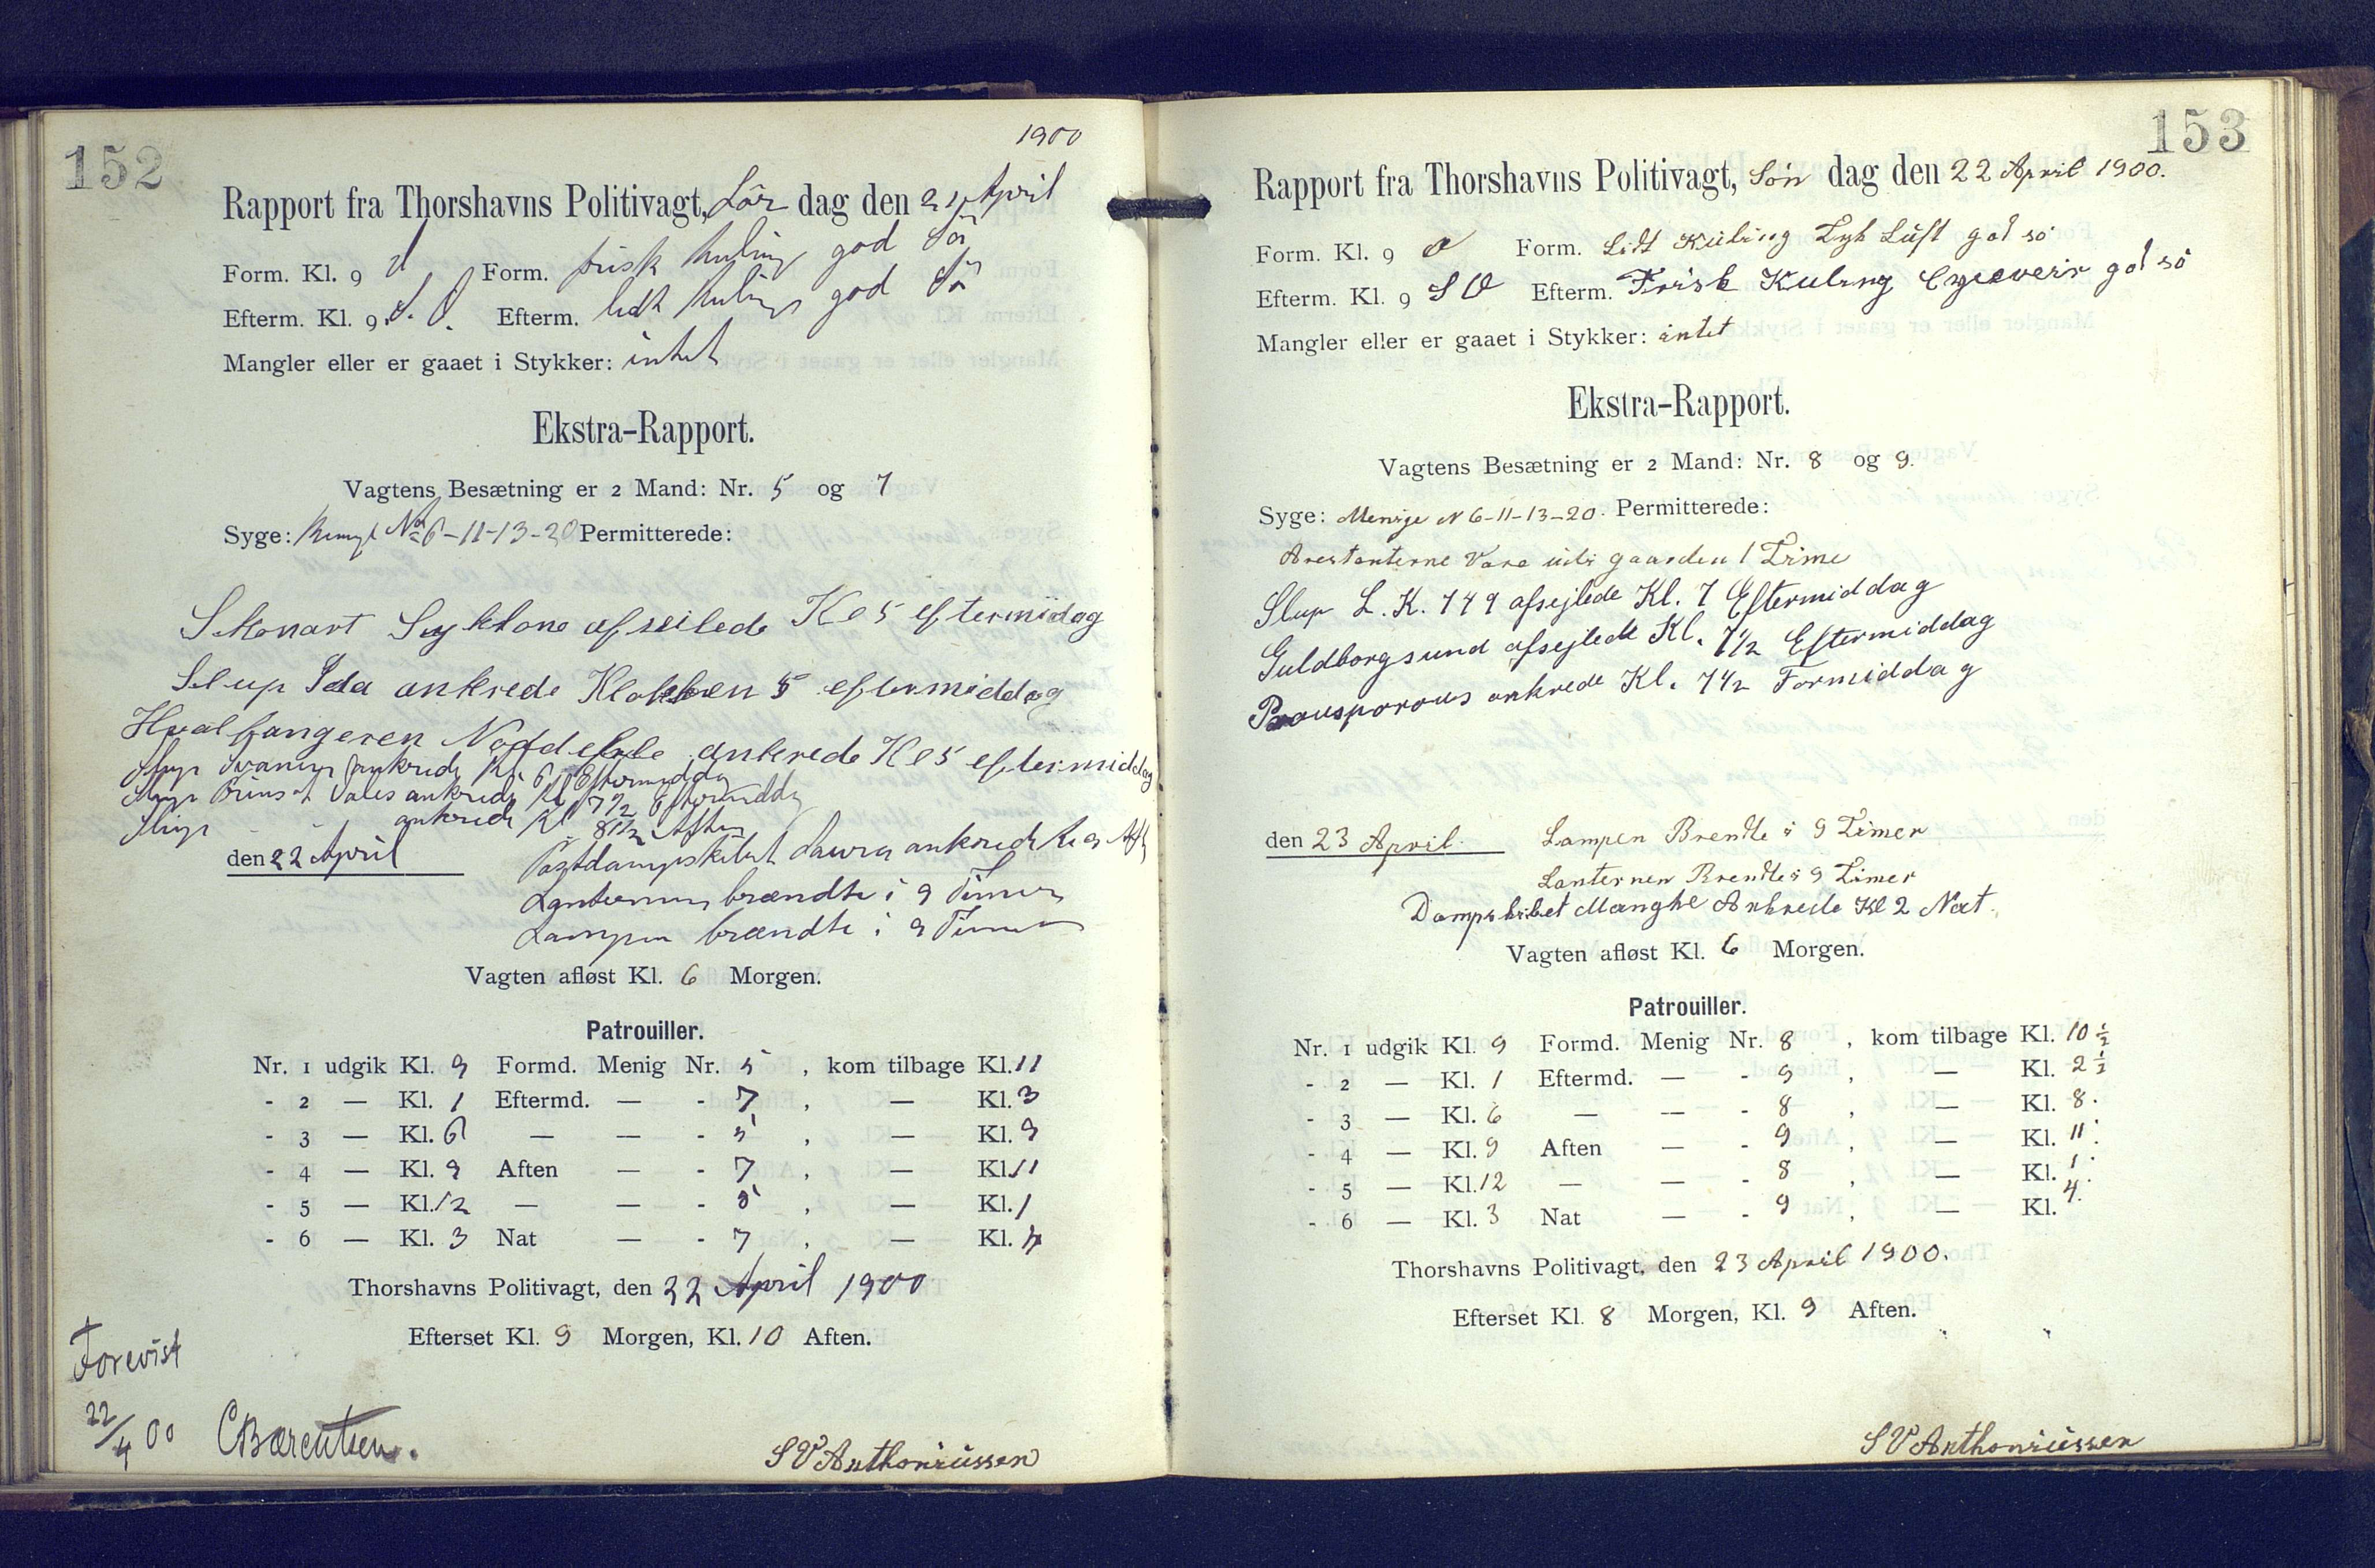 152
1900
Rapport fra Thorshavns Politivagt, Lör dag den 21 April
Form. Kl. 9 Form. frisk kuling god Sö
Efterm. Kl. 9 S. O. Efterm. lidt kuling god Sö
Mangler eller er gaaet i Stykker: intet
Ekstra-Rapport.
Vagtens Besætning er 2 Mand: Nr. 5 og 7
Syge: No 6-11-13-20 Permitterede:
Skonart Syklone afseilede Kl 5 eftermidag
Slup Ida ankrede Klokken 5 eftermiddag
Hvalfangeren ankrede Kl 5 eftermiddag
Slup ankrede Kl 6 Eftermiddag
Slup Prins of Vales ankrede Kl 7 1/2 Eftermiddag
Slup - - ankrede Kl 8 1/2 Aften
den 22 April Postdampskibet Laura ankrede Kl 9 Aft
Lanternen brændte i 9 Timer
Lampen brændte i 9 Timer
Vagten afløst Kl. 6 Morgen.
Patrouiller.
Nr. 1 udgik Kl. 9 Formd. Menig Nr. 5 , kom tilbage Kl. 11
- 2 — Kl. 1 Eftermd. — - 7 , — Kl. 3
- 3 — Kl. 6 — — - 5 , — Kl. 9
- 4 — Kl. 9 Aften — - 7 , — Kl. 11
- 5 — Kl. 12 — — - 5 , — Kl. 1
- 6 — Kl. 3 Nat — - 7 , — Kl. 4
Thorshavns Politivagt, den 22 April 1900
Efterset Kl. 9 Morgen, Kl. 10 Aften.
Forevist
22/4 00 CBærentsen.
SV Anthoniussen
153
Rapport fra Thorshavns Politivagt, Søn dag den 22 April 1900.
Form. Kl. 9 O Form. Lidt Kuling Tyk Luft god sö
Efterm. Kl. 9 S O Efterm. Frisk Kuling god sö
Mangler eller er gaaet i Stykker: intet
Ekstra-Rapport.
Vagtens Besætning er 2 Mand: Nr. 8 og 9.
Syge: Menige N 6-11-13-20. Permitterede:
Arestanterne Vare udi gaarden 1 Time
Slup L. K. 749 afsejlede Kl. 7 Eftermiddag
Guldborgsund afsejlede Kl. 7 1/2 Eftermiddag
Prousporous ankrede Kl. 7 1/2 Formiddag
den 23 April. Lampen Brendte i 9 Timer
Lanternen Brendte i 9 Timer
Dampskibet Manghe Ankrede Kl 2 Nat.
Vagten afløst Kl. 6 Morgen.
Patrouiller.
Nr. 1 udgik Kl. 9 Formd. Menig Nr. 8 , kom tilbage Kl. 10 1/2
- 2 — Kl. 1 Eftermd. — - 9 , — Kl. 2 1/2
- 3 — Kl. 6 — — - 8 , — Kl. 8.
- 4 — Kl. 9 Aften — - 9 , — Kl. 11.
- 5 — Kl. 12 — — - 8 , — Kl. 1.
- 6 — Kl. 3 Nat — - 9 , — Kl. 4.
Thorshavns Politivagt, den 23 April 1900.
Efterset Kl. 8 Morgen, Kl. 9 Aften.
SV Anthoniussen